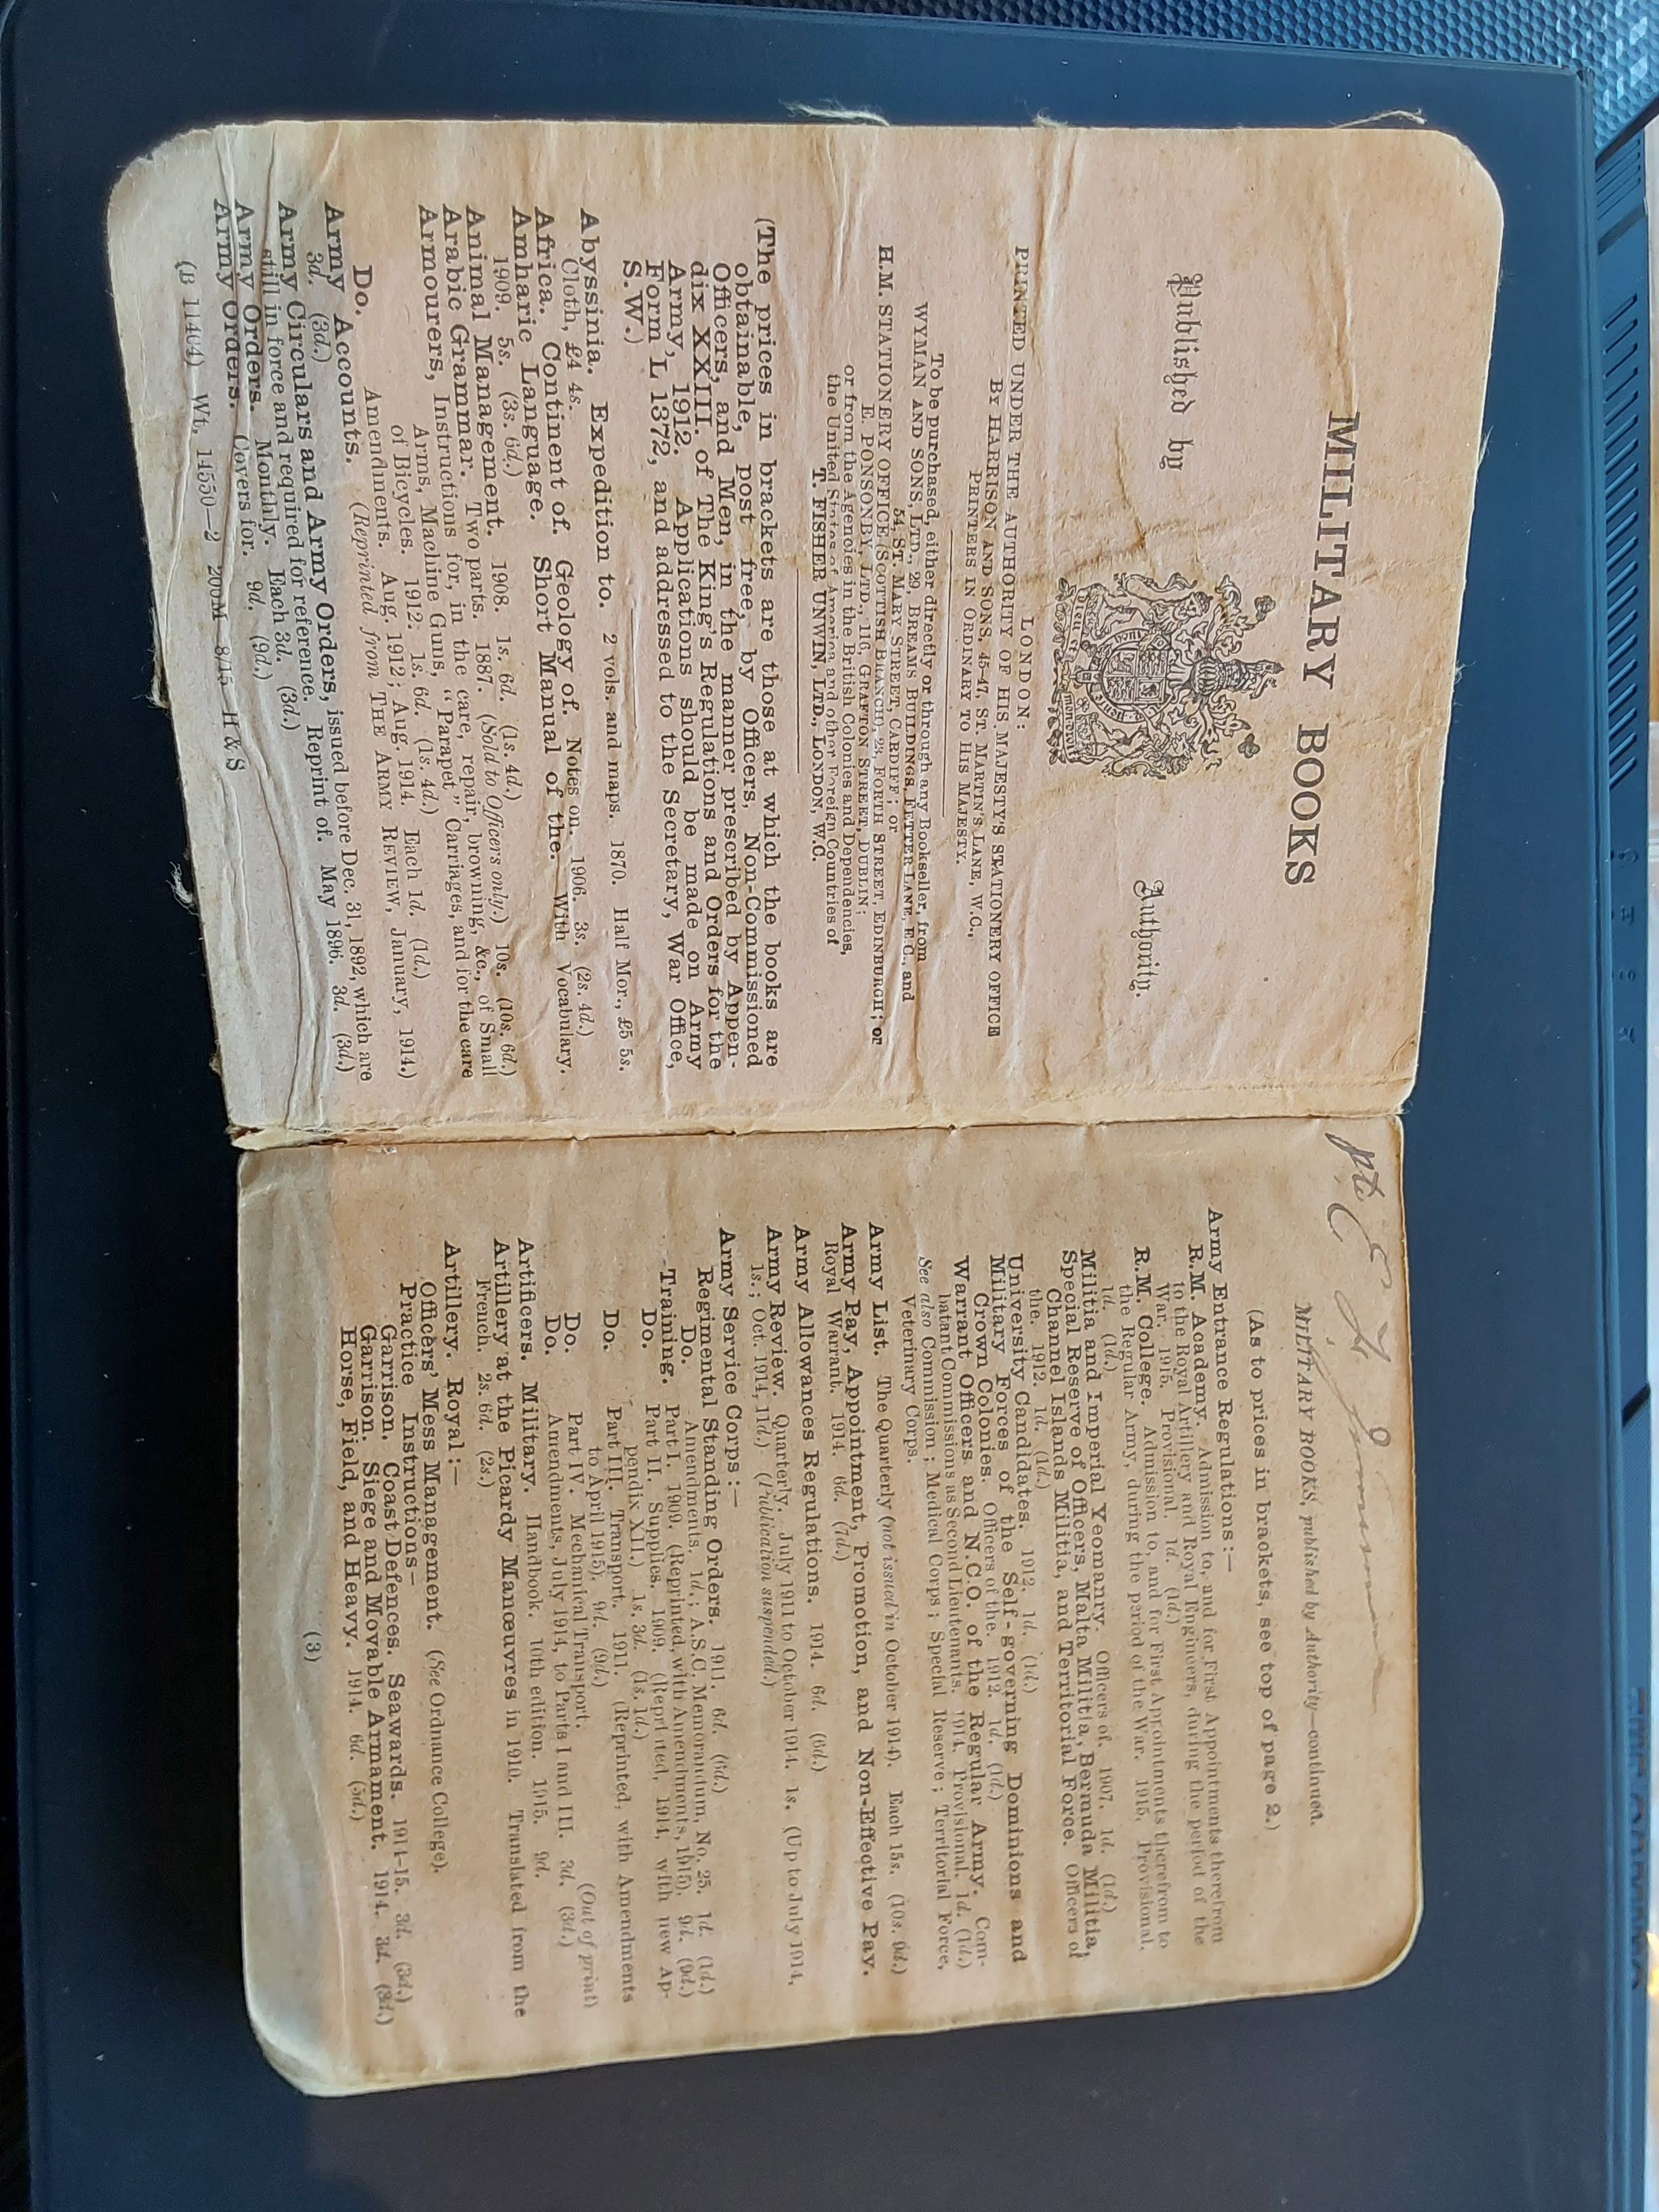 MILITARY BOOKS
Published by Authority.
DIEU ET MON DROIT
LONDON:
PRINTED UNDER THE AUTHORITY OF HIS MAJESTY'S STATIONERY OFFICE
BY HARRISON AND SONS, 45-47, ST. MARTIN'S LANE, W.C.,
PRINTERS IN ORDINARY TO HIS MAJESTY.
To be purchased, either directly or through any Bookseller, from
WYMAN AND SONS, LTD., 29, BREAMS BUILDINGS, FETTER LANE, E.C., and
54, ST. MARY STREET, CARDIFF; or
H.M. STATIONERY OFFICE (SCOTTISH BRANCH), 23, FORTH STREET, EDINBURGH; or
E. PONSONBY, LTD., 116, GRAFTON STREET, DUBLIN;
or from the Agencies in the British Colonies and Dependencies,
the United States of America and other Foreign Countries of
T. FISHER UNWIN, LTD., LONDON, W.C.
(The prices in brackets are those at which the books are
obtainable, post free, by Officers, Non-Commissioned
Officers, and Men, in the manner prescribed by Appen-
dix XXIII. of The King's Regulations and Orders for the
Army, 1912. Applications should be made on Army
Form L 1372, and addressed to the Secretary, War Office,
S.W.)
Abyssinia. Expedition to. 2 vols. and maps. 1870. Half Mor., £5 5s.
Cloth, £4 4s.
Africa. Continent of. Geology of. Notes on. 1906. 3s. (2s. 4d.)
Amharic Language. Short Manual of the. With Vocabulary.
1909. 5s. (3s. 6d.)
Animal Management. 1908. 1s. 6d. (1s. 4d.)
Arabic Grammar. Two parts. 1887. (Sold to Officers only.) 10s. (10s. 6d.)
Armourers, Instructions for, in the care, repair, browning, &c., of Small
Arms, Machine Guns, "Parapet" Carriages, and for the care
of Bicycles. 1912. 1s. 6d. (1s. 4d.)
Do. Amendments. Aug. 1912; Aug. 1914. Each 1d. (1d.)
Army Accounts. (Reprinted from THE ARMY REVIEW, January, 1914.)
3d. (3d.)
Army Circulars and Army Orders, issued before Dec. 31, 1892, which are
still in force and required for reference. Reprint of. May 1896. 3d. (3d.)
Army Orders. Monthly. Each 3d. (3d.)
Army Orders. Covers for. 9d. (9d.)
(B 11404) Wt. 14550—2 200M 8/15 H & S
Pte E
MILITARY BOOKS, published by Authority—continued.
(As to prices in brackets, see top of page 2.)
Army Entrance Regulations:—
R.M. Academy. Admission to, and for First Appointments therefrom
to the Royal Artillery and Royal Engineers, during the period of the
War. 1915. Provisional. 1d. (1d.)
R.M. College. Admission to, and for First Appointments therefrom to
the Regular Army, during the period of the War. 1915. Provisional.
1d. (1d.)
Militia and Imperial Yeomanry. Officers of. 1907. 1d. (1d.)
Special Reserve of Officers, Malta Militia, Bermuda Militia,
Channel Islands Militia, and Territorial Force. Officers of
the. 1912. 1d. (1d.)
University Candidates. 1912. 1d. (1d.)
Military Forces of the Self-governing Dominions and
Crown Colonies. Officers of the. 1912. 1d. (1d.)
Warrant Officers and N.C.O. of the Regular Army. Com-
batant Commissions as Second Lieutenants. 1914. Provisional. 1d. (1d.)
See also Commission; Medical Corps; Special Reserve; Territorial Force,
Veterinary Corps.
Army List. The Quarterly (not issued in October 1914). Each 15s. (10s. 9d.)
Army Pay, Appointment, Promotion, and Non-Effective Pay.
Royal Warrant. 1914. 6d. (7d.)
Army Allowances Regulations. 1914. 6d. (6d.)
Army Review. Quarterly. July 1911 to October 1914. 1s. (Up to July 1914,
1s.; Oct. 1914, 11d.) (Publication suspended.)
Army Service Corps:—
Regimental Standing Orders. 1911. 6d. (6d.)
Do. Amendments. 1d.; A.S.C. Memorandum, No. 25. 1d. (1d.)
Training. Part I. 1909. (Reprinted, with Amendments, 1915). 9d. (9d.)
Do. Part II. Supplies. 1909. (Reprinted, 1914, with new Ap-
pendix XII.) 1s. 3d. (1s. 1d.)
Do. Part III. Transport. 1911. (Reprinted, with Amendments
to April 1915). 9d. (9d.)
Do. Part IV. Mechanical Transport. (Out of print)
Do. Amendments, July 1914, to Parts I and III. 3d. (3d.)
Artificers. Military. Handbook. 10th edition. 1915. 9d.
Artillery at the Picardy Manœuvres in 1910. Translated from the
French. 2s. 6d. (2s.)
Artillery. Royal:—
Officers' Mess Management. (See Ordnance College).
Practice Instructions—
Garrison. Coast Defences. Seawards. 1914-15. 3d. (3d.)
Garrison. Siege and Movable Armament. 1914. 3d. (3d.)
Horse, Field, and Heavy. 1914. 6d. (5d.)
(3)